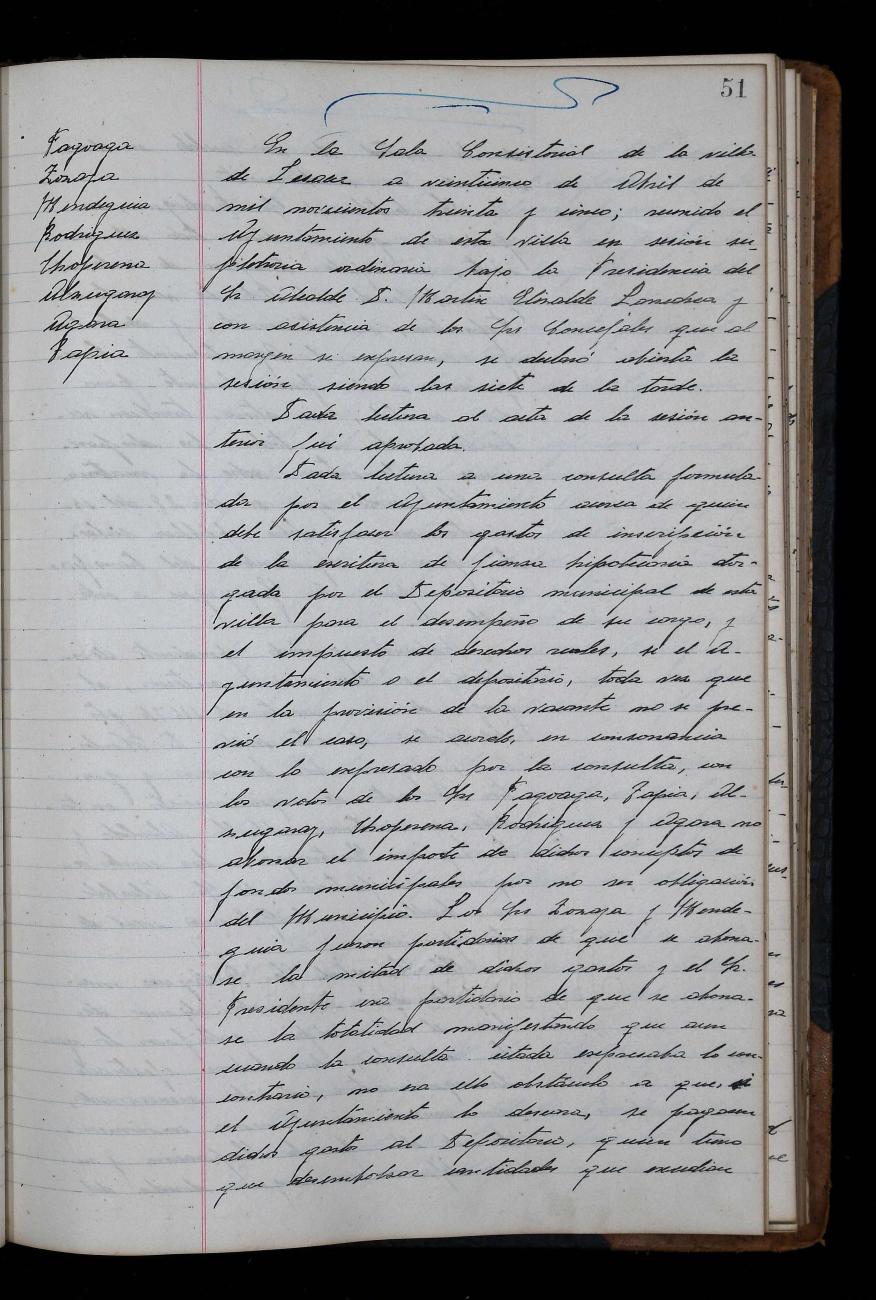 51
Fagoaga
Zozaya
Mendeguia
Rodriguez
Choperena
Alzugaray
Agara
Tapia
En la Sala Consistorial de la villa
de Lesaca a veinticinco de Abril de
mil novecientos treinta y cinco; reunido el
Ayuntamiento de esta villa en sesión su-
pletoria ordinaria bajo la Presidencia del
Sr Alcalde D. Martín Elizalde y
con asistencia de los Srs Concejales que al
margen se expresan, se declaró abierta la
sesión siendo las siete de la tarde.
Dada lectura al acta de la sesión an-
terior fué aprobada.
Dada lectura a una consulta formula-
da por el Ayuntamiento acerca de quien
debe satisfacer los gastos de inscripción
de la escritura de fianza hipotecaria otor-
gada por el Depositario municipal de esta
villa para el desempeño de su cargo, y
el impuesto de derechos reales, si el A-
yuntamiento o el depositario, toda vez que
en la provisión de la vacante no se pre-
vió el caso, se acordó, en consonancia
con lo expresado por la consulta, con
los votos de los Srs Fagoaga, Tapia, Al-
zugaray, Choperena, Rodriguez y Agara no
abonar el importe de dichos conceptos de
fondos municipales por no ser obligación
del Municipio. Los Srs Zozaya y Mende-
guia fueron partidarios de que se abona-
se la mitad de dichos gastos y el Sr.
Presidente era partidario de que se abona-
se la totalidad manifestando que aun
cuando la consulta citada expresaba lo
contrario, no era ello obstáculo a que, si
el Ayuntamiento lo deseara, se pagasen
dichos gastos al Depositario, quien tuvo
que desembolsar cantidades que excedian